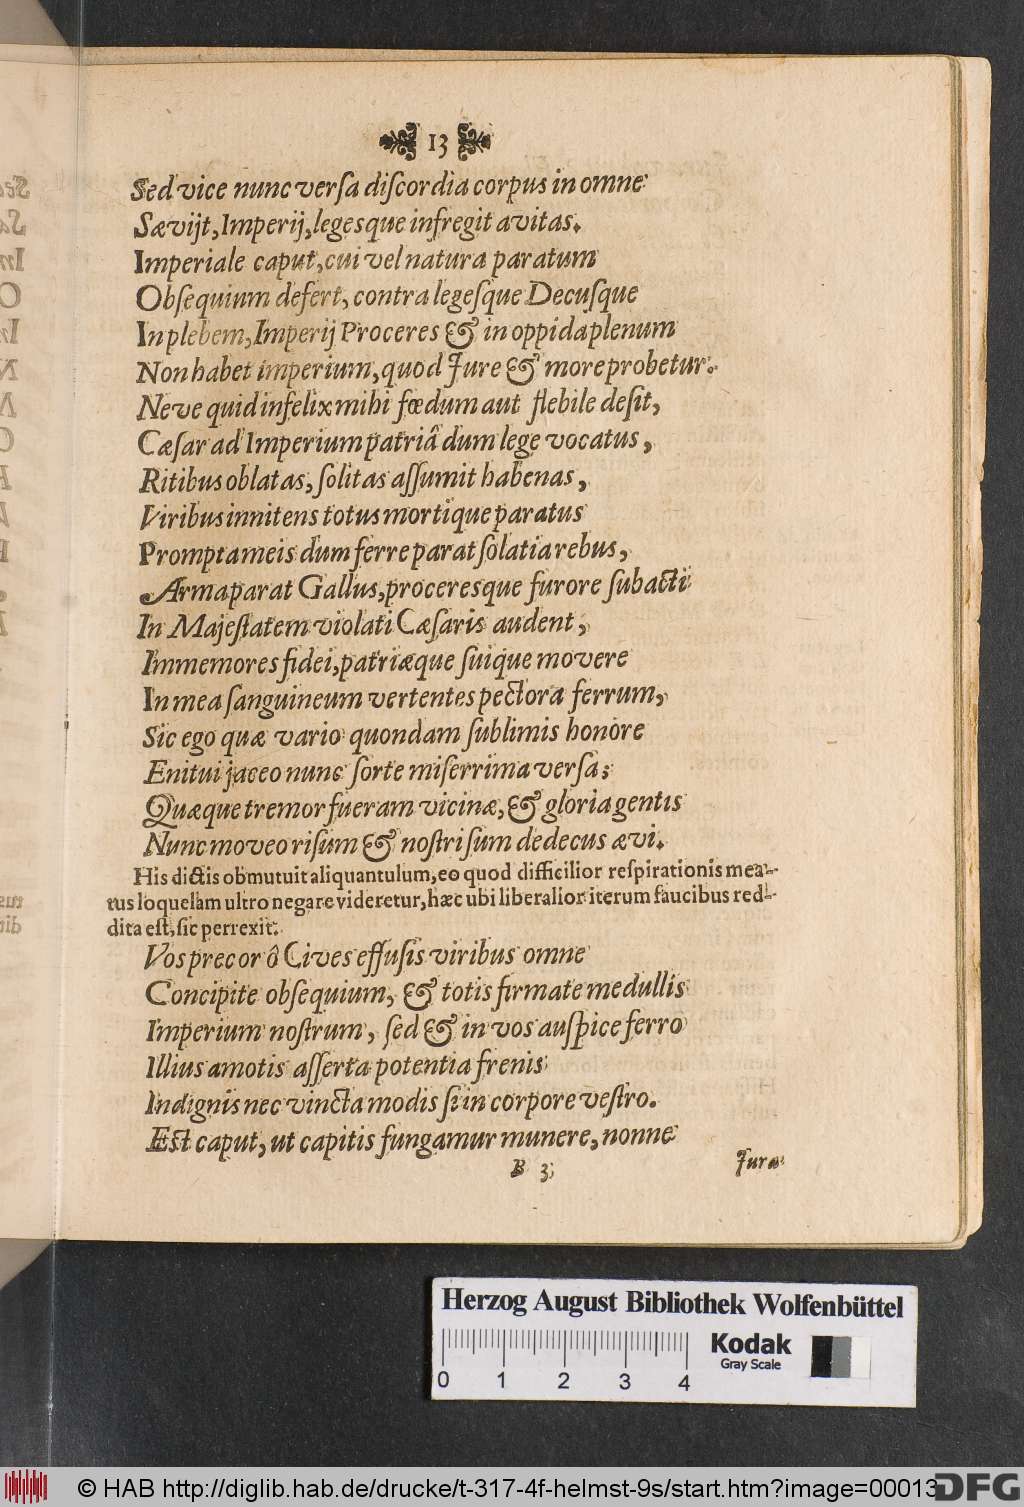 13
Sed vice nunc versa discordia corpus in omne
Sævijt, Imperij, legesque infregit avitas.
Imperiale caput, cui vel natura paratum
Obsequium defert, contra legesque Decusque
In plebem, Imperij Proceres & in oppida plenum
Non habet imperium, quod Jure & more probetur.
Neve quid infelix mihi fœdum aut flebile desit,
Cæsar ad Imperium patriâ dum lege vocatus,
Ritibus oblatas, solitas assumit habenas,
Viribus innitens totus mortique paratus
Promptameis dum ferre parat solatia rebus,
Arma parat Gallus, proceresque furore subacti
In Majestatem violati Cæsaris audent,
Immemores fidei, patriæque suique movere
In mea sanguineum vertentes pectora ferrum,
Sic ego quæ vario quondam sublimis honore
Enitui jaceo nunc sorte miserrima versa;
Quæque tremor fueram vicinæ, & gloria gentis
Nunc moveo risum & nostri sum dedecus ævi.
His dictis obmutuit aliquantulum, eo quod difficilior respirationis mea-
tus loquelam ultro negare videretur, hæc ubi liberalior iterum faucibus red-
dita est, sic perrexit.
Vos precor ô Cives effusis viribus omne
Concipite obsequium, & totis firmate medullis
Imperium nostrum, sed & in vos auspice ferro
Illius amotis asserta potentia frenis
Indignis nec vincta modis si in corpore vestro.
Est caput, ut capitis fungamur munere, nonne
B 3 Jura
Herzog August Bibliothek Wolfenbüttel
Kodak
Gray Scale
0 1 2 3 4
© HAB http://diglib.hab.de/drucke/t-317-4f-helmst-9s/start.htm?image=00013
DFG